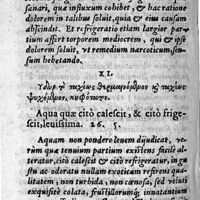 sunari, quæ influxum cohibet, & hac ratione
dolorem in talibus soluit, quia & eius causam
abscindit. Et refrigeratio etiam largior par-
tium affert torporem mediocrem, qui & ipse
dolorem soluit, vt remedium narcoticum, sen-
sum hebetando.
XI.
Ὕδωρ τὸ ταχέως θερμαινόμενον καὶ ταχέως
ψυχόμενον, κουφότατον.
Aqua quæ citò calescit, & citò frige-
scit, leuissima. 26. 5.
Aquam non pondere leuem dijudicat, ve-
rùm quæ tenuium partium existens facilè al-
teratur, citò calescit & citò refrigeratur, in gu-
stu ac odoratu nullam exoticam referens qua-
litatem, non turbida, non cœnosa, sed veluti
exquisitè colata, frustillorumque, innatantium